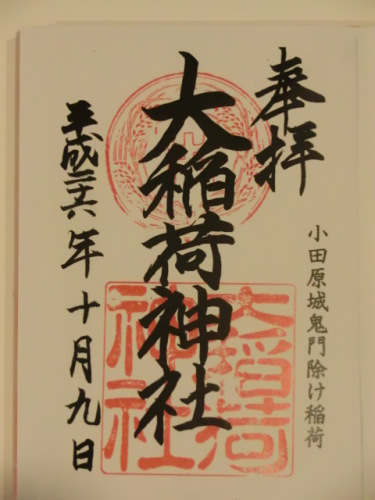 奉拝
小田原城鬼門除け稲荷
大稲荷神社
大稲荷
神社
平成二十六年十月九日